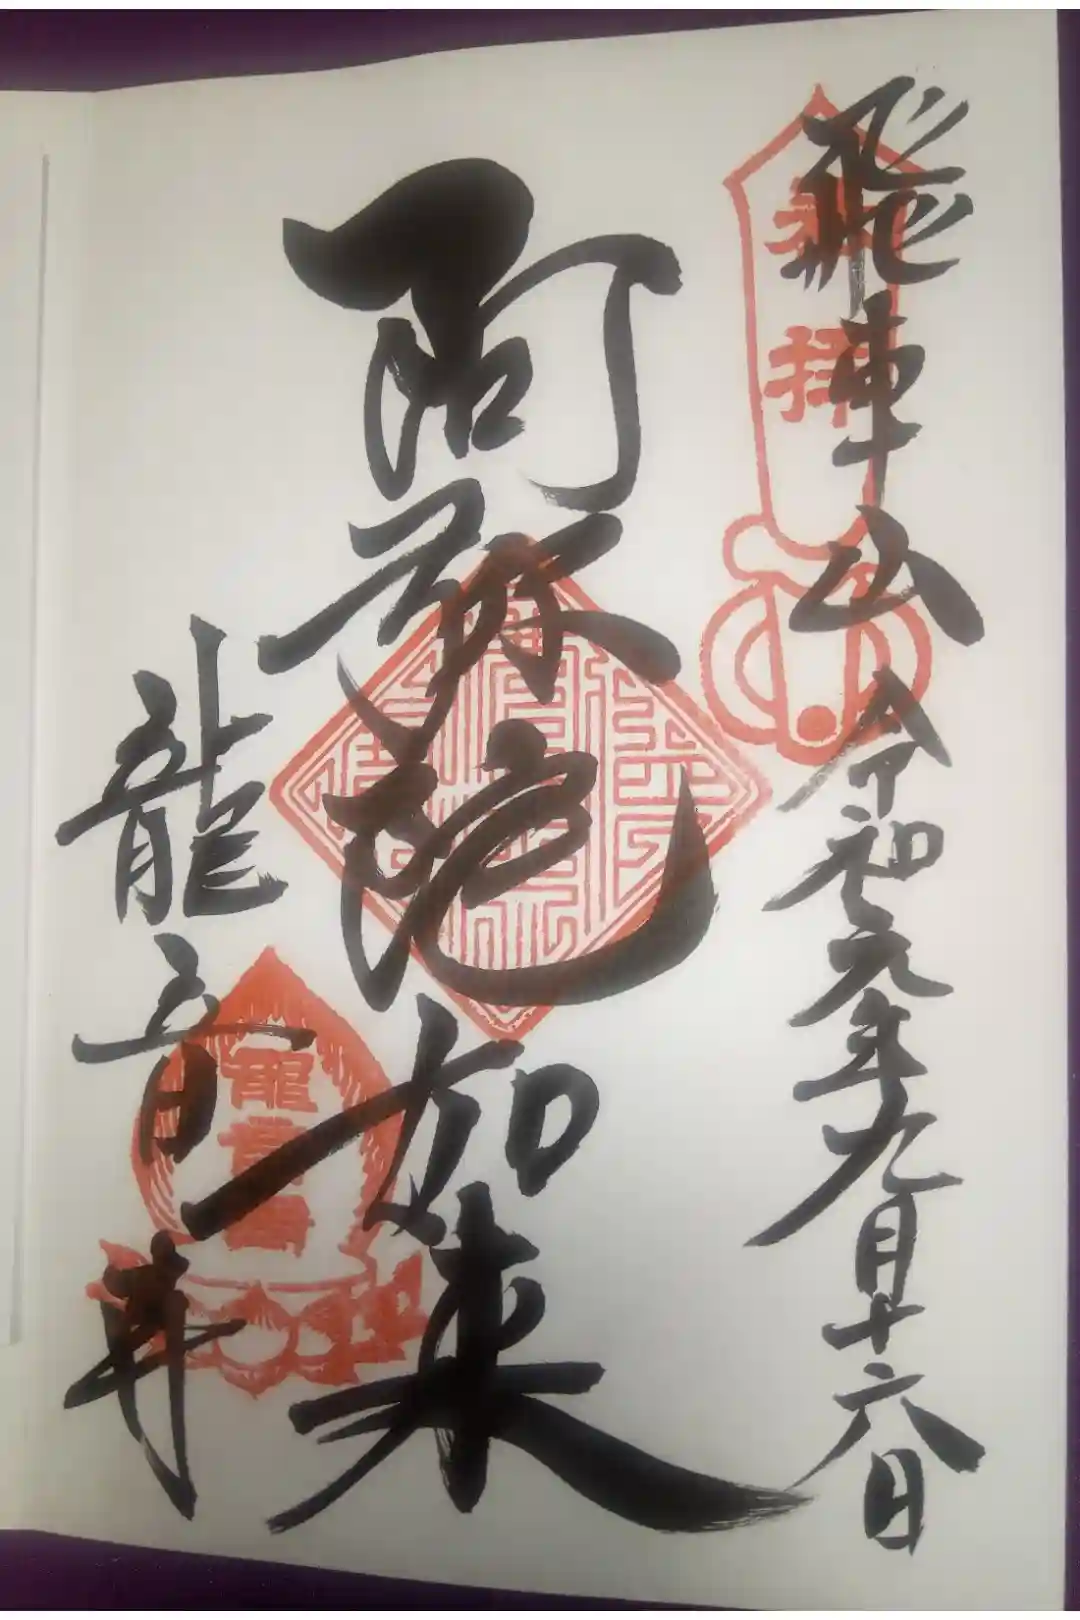 飛車山 令和元年九月十六日
奉拝
阿弥陀如来
龍音寺
龍音寺